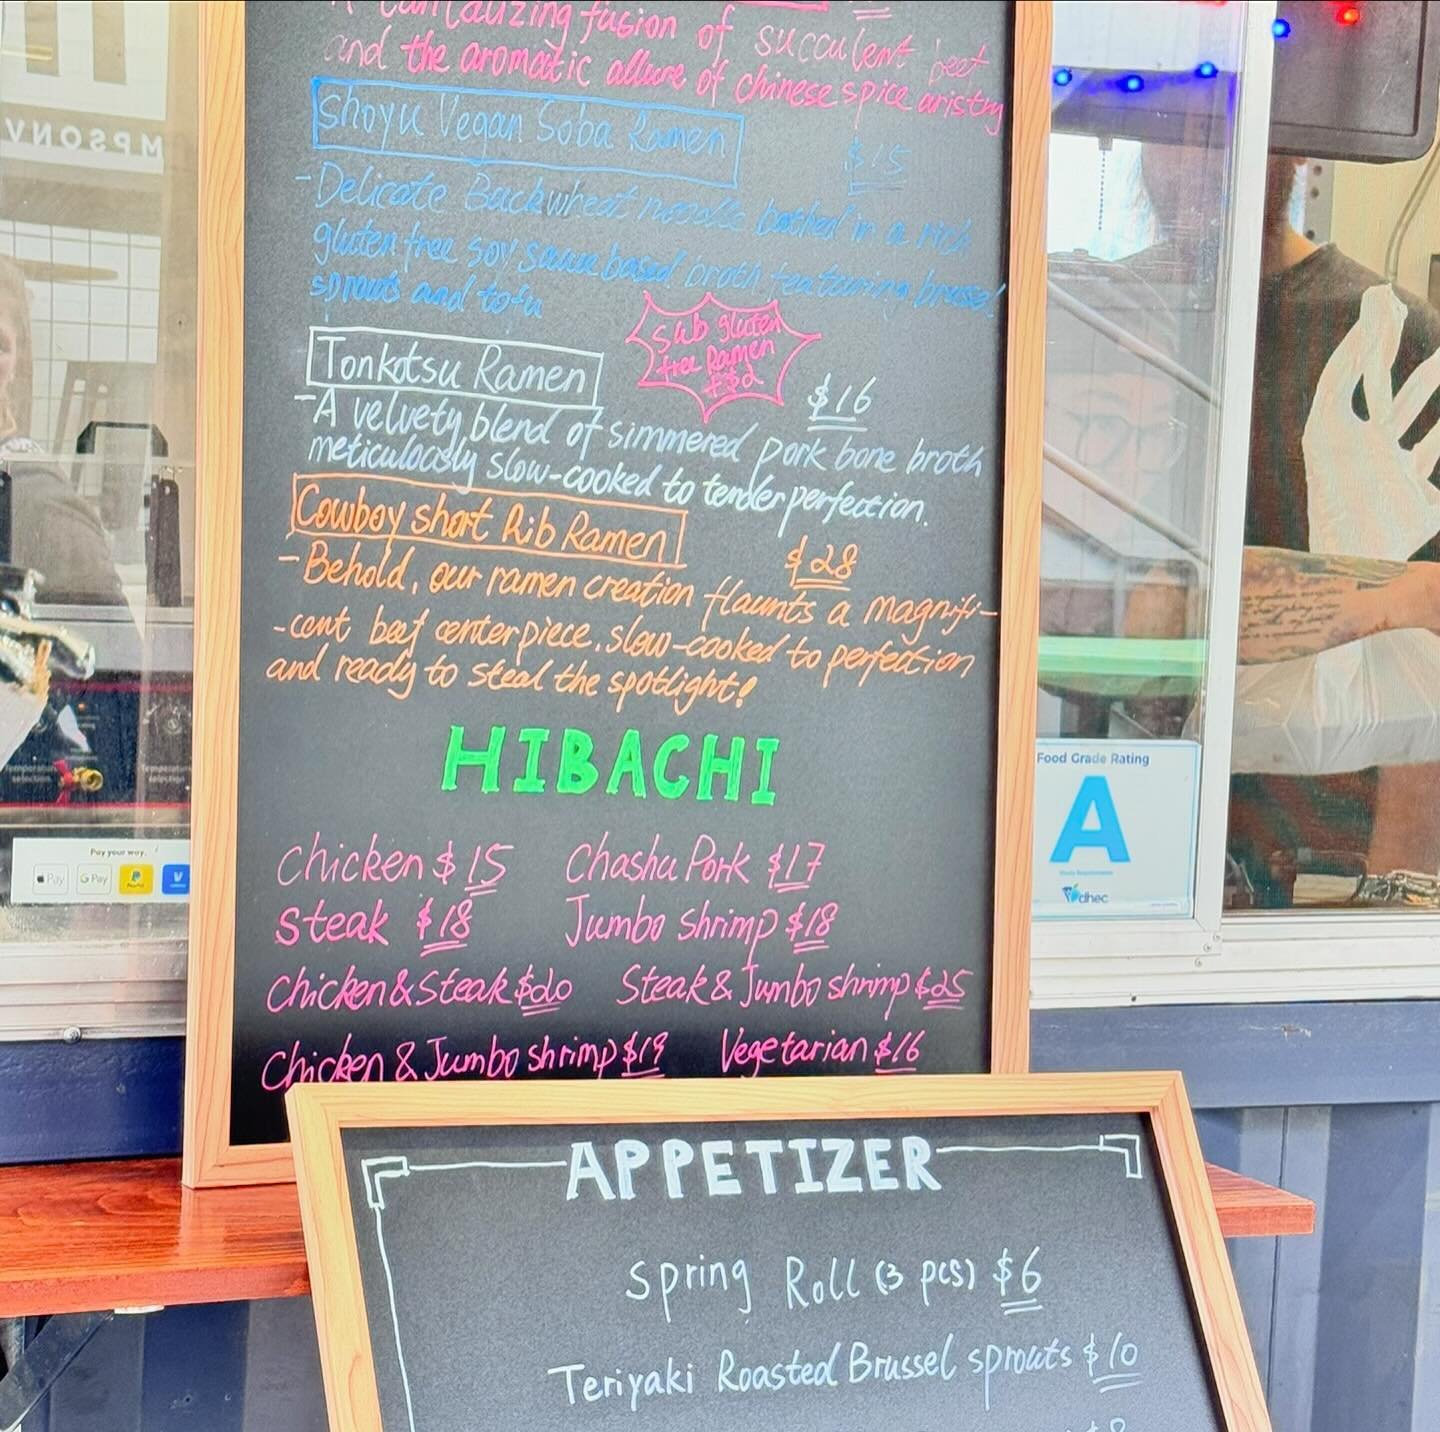 A tantalizing fusion of succulent beef
and the aromatic allure of chinese spice aristry
Shoyu Vegan Soba Ramen
$15
-Delicate Backwheat noodle bathed in a rich
gluten free soy sauce based broth, featuring brussel
sprouts and tofu
Sub gluten
free Ramen
+$2
Tonkotsu Ramen
$16
-A velvety blend of simmered pork bone broth
meticulously slow-cooked to tender perfection.
Cowboy short Rib Ramen
$28
-Behold, our ramen creation flaunts a magnifi-
-cent beef centerpiece, slow-cooked to perfection
and ready to steal the spotlight!
HIBACHI
Chicken $15 Chashu Pork $17
Steak $18 Jumbo Shrimp $18
Chicken & Steak $20 Steak & Jumbo shrimp $25
Chicken & Jumbo shrimp $19 Vegetarian $16
APPETIZER
Spring Roll (3 pcs) $6
Teriyaki Roasted Brussel sprouts $10
Food Grade Rating
A
dhec
Pay your way.
Pay
G Pay
PayPal
Temperature
selection
MPSONV